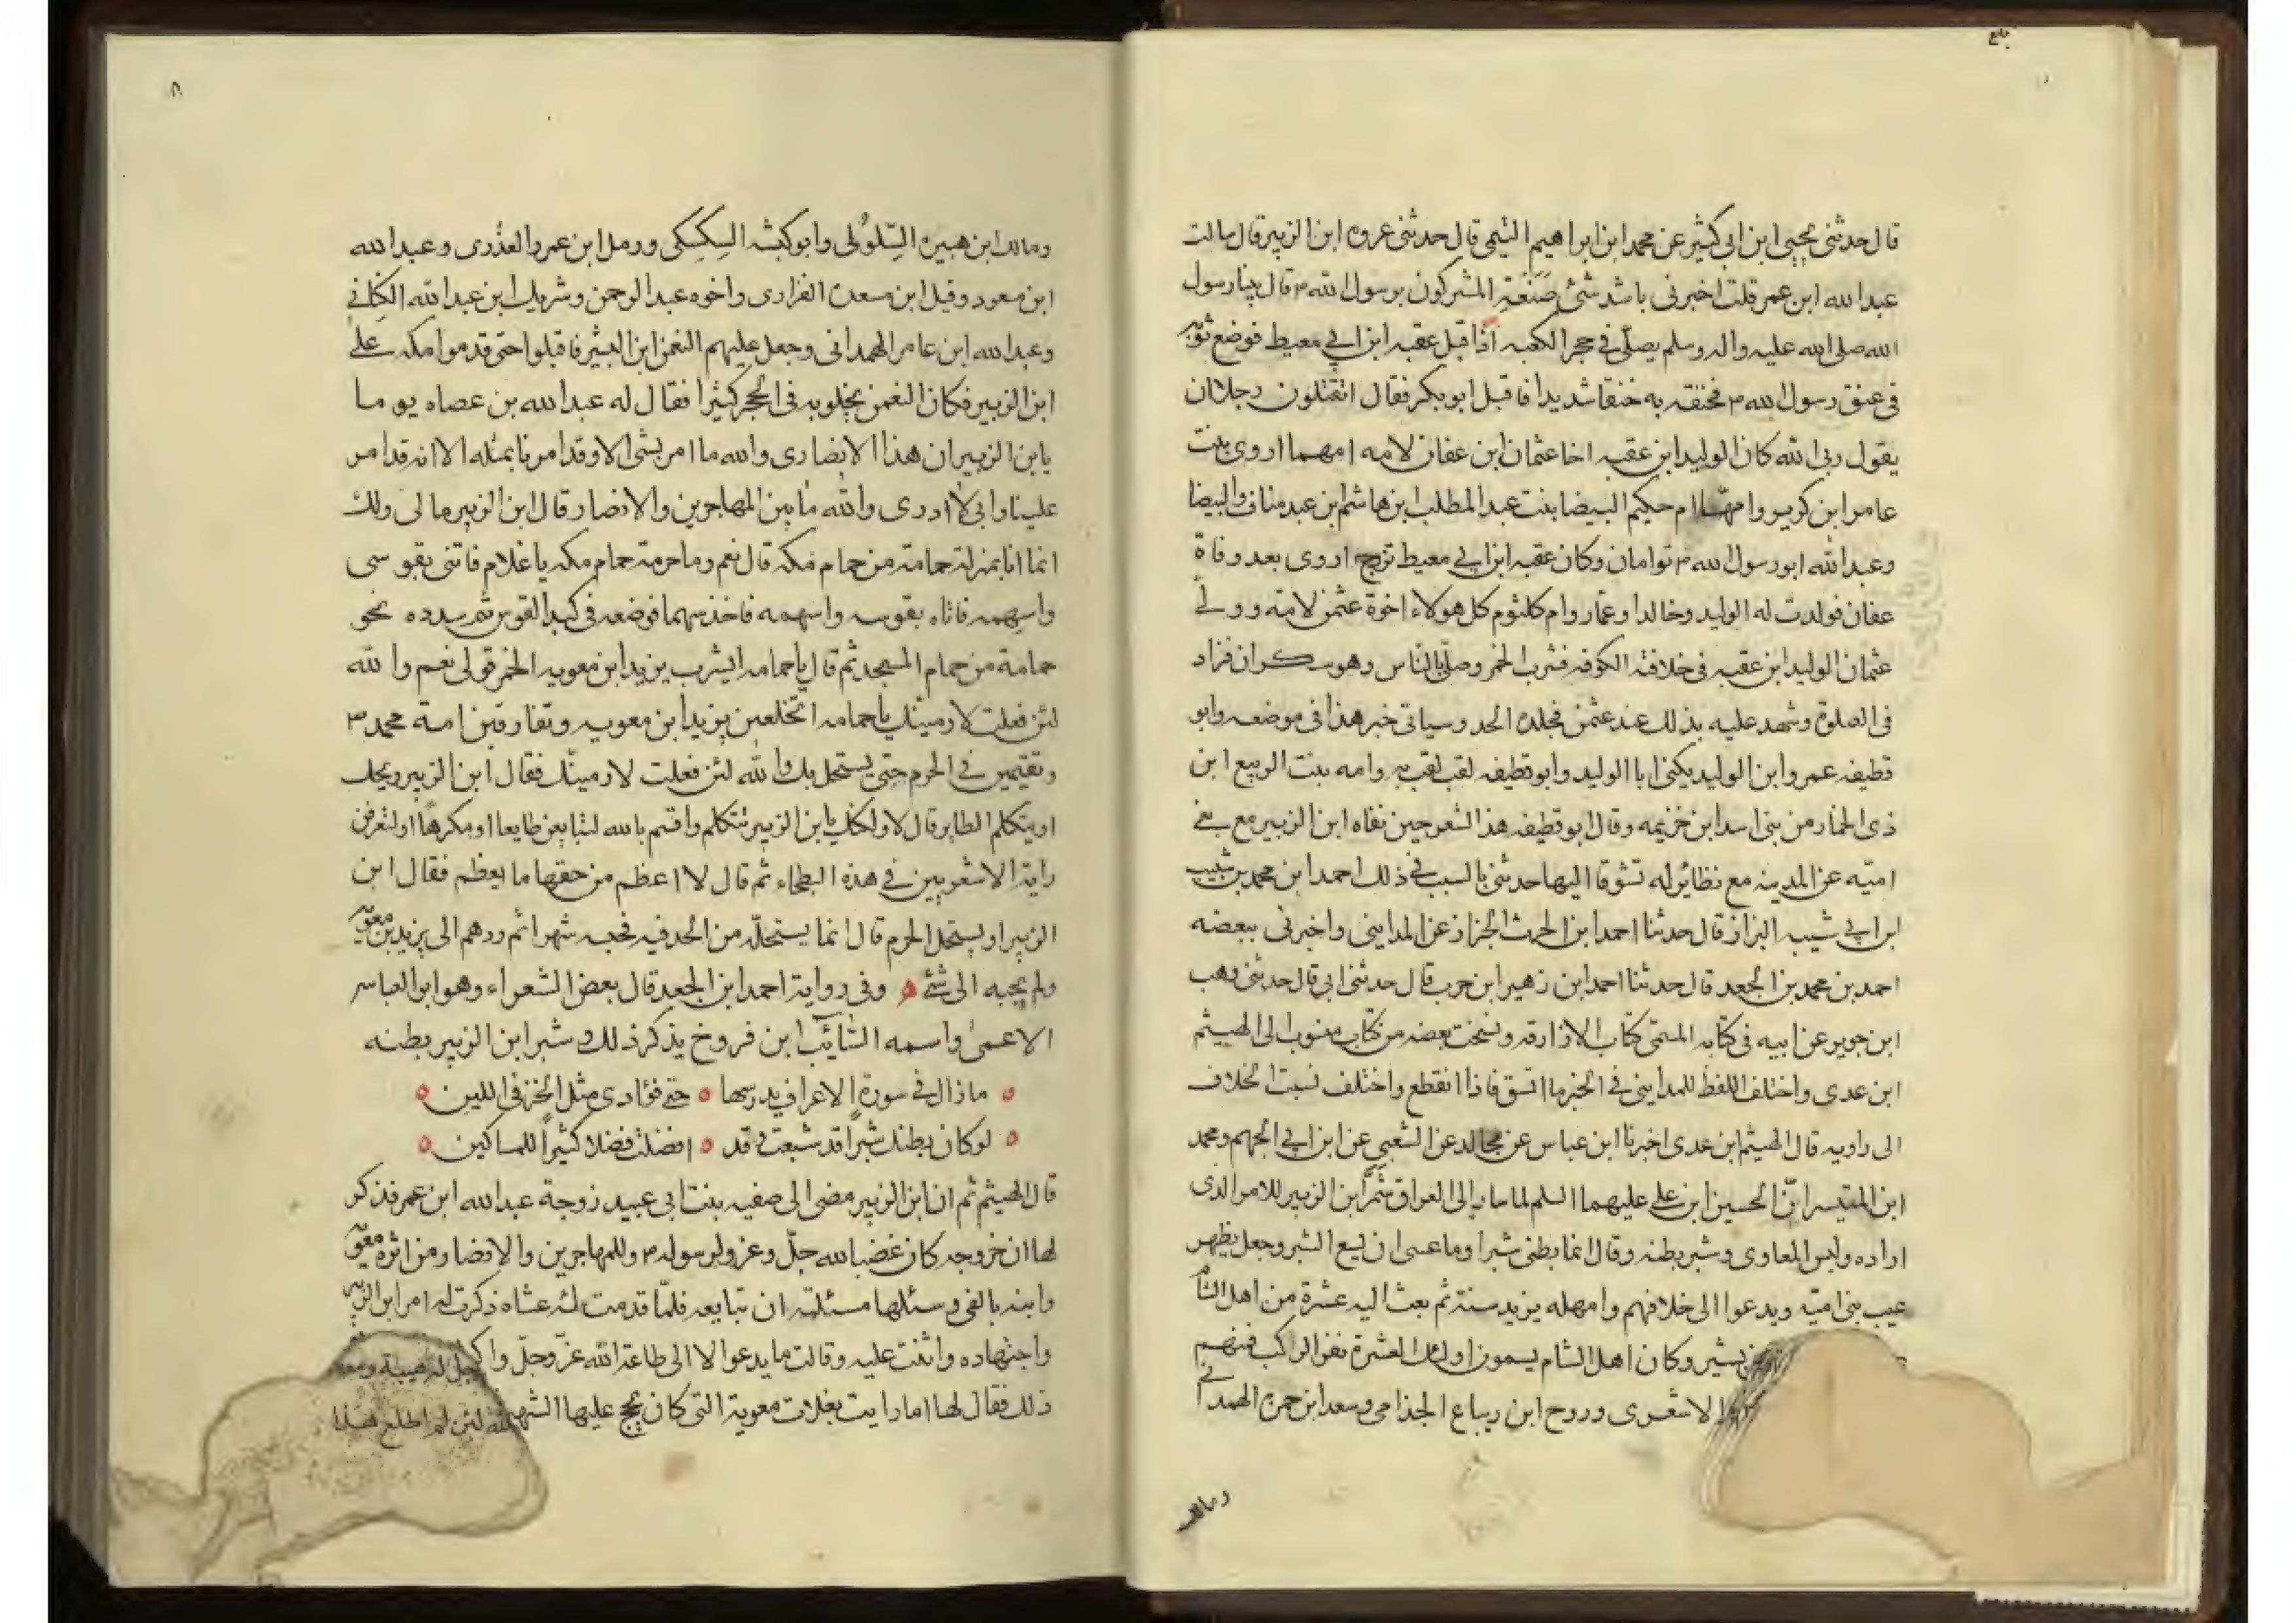 قال حدثنى يحيى ابن ابى كثير عن محمد ابن ابراهيم التيمى قال حدثنى عروه ابن الزبير قال سالت
عبد الله ابن عمر قلت اخبرنى باشد شئ صنعة المشركون برسول الله ص قال بينا رسول
الله صلى الله عليه واله وسلم يصلّى فى حجر الكعبه اذ اقبل عقبه ابن ابى معيط فوضع ثوبه
فى عنق رسول الله ص فخنقه به خنقا شديدا فاقبل ابو بكر فقال اتقتلون رجلا ان
يقول ربى الله كان الوليد ابن عقبه اخا عثمان ابن عفان لامه امهما اروى بنت
عامر ابن كريز وامهّا ام حكيم البيضا بنت عبد المطلب ابن هاشم ابن عبد مناف والبيضا
وعبد الله ابو رسول الله ص توامان وكان عقبه ابن ابى معيط تزوج اروى بعد وفاة
عفان فولدت له الوليد وخالدا وعمار وام كلثوم كل هولاء اخوة عثمن لامه وولى
عثمان الوليد ابن عقبه فى خلافته الكوفه فشرب الخمر وصلّى بالناس وهو سكران فزاد
فى الصلوة وشهد عليه بذلك عند عثمن فجلده الحد وسياتى خبر هذا فى موضعه وابو
قطيفه عمرو ابن الوليد يكنى ابا الوليد وابو قطيفه لقب لقب به وامه بنت الربيع ابن
ذى الخمار من بنى اسد ابن خزيمه وقال ابو قطيفه هذا الشعر حين نفاه ابن الزبير مع بنى
اميّه عن المدينه مع نظائر له تشوقا اليها حدثنى بالسبب فى ذلك احمد ابن محمد بن شبيب
ابن ابى شيبه البزاز قال حدثنا احمد ابن الحرث الخزاز عن المداينى واخبرنى ببعضه
احمد بن محمد بن الجعد قال حدثنا احمد ابن زهير ابن حرب قال حدثنى ابى قال حدثنى وهب
ابن جرير عن ابيه فى كتابه المسمّى كتاب الازارقه ونسخت بعضه من كتاب منسوب الى الهيثم
ابن عدى واختلف اللفظ للمداينى فى الخبر ما اتسق فاذا انقطع واختلف نسبت الخلاف
الى راويه قال الهيثم ابن عدى اخبرنا ابن عباس عن مجالد عن الشعبى عن ابن ابى الجهم ومحمد
ابن المنتسر انّ الحسين ابن على عليهما السلم لما سار الى العراق شمّر ابن الزبير للامر الذى
اراده ولبس المعاوى وشبر بطنه وقال انما بطنى شبرا وما عسى ان يسع الشبر وجعل يظهر
عيب بنى اميّه ويدعوا الى خلافهم وامهله يزيد سنة ثم بعث اليه عشرة من اهل الشام
بشير وكان اهل الشام يسمون اولئك العشرة نفر الراكب فمنهم
الاشعرى وروح ابن رباع الجذامى وسعد ابن حمزه الهمدانى
ومالك
ومالك ابن هبيره السّلولى وابو كبشه السكسكى ورمل ابن عمرو العذرى وعبد الله
ابن معود وقيل ابن مسعدة الفزارى واخوه عبد الرحمن وشريك ابن عبد الله الكنانى
وعبد الله ابن عامر الهمدانى وجعل عليهم النعمن ابن البشير فاقبلوا حتى قدموا مكه على
ابن الزبير فكان النعمن يخلو به فى الحجر كثيرا فقال له عبد الله بن عصاه يوما
يا بن الزبير ان هذا الانصارى والله ما امر بشئ الا وقد امرنا بمثله الا انه قد امر
علينا وانى لا ادرى والله ما بين المهاجرين والانصار قال ابن الزبير مالى ولك
انما انا بمنزلة حمامة من حمام مكه قال نعم وما حرمة حمام مكه يا غلام فاتنى بقوسى
واسهمه فاتاه بقوسه واسهمه فاخذ سهما فوضعه فى كبد القوس ثم سدده نحو
حمامة من حمام المسجد ثم قال يا حمامه ايشرب يزيد ابن معويه الخمر قولى نعم والله
لئن فعلت لارمينك يا حمامه اتخلعين يزيد ابن معويه وتفارقين امة محمد ص
وتقيمين فى الحرم حتى يستحل بك والله لئن فعلت لارمينّك فقال ابن الزبير ويحك
اويتكلم الطاير قال لا ولكنك يابن الزبير تتكلم واقسم بالله لتبايعن طايعا او مكرهاً اولتعرفن
راية الاشعريين فى هذه البطحاء ثم قال لا اعظم من حقها ما يعظم فقال ابن
الزبير اويستحل الحرم قال انما يستحلّه من الحد فيه فحبسه شهرا ثم ردهم الى يزيد بن معويه
ولم يجبه الى شئ ه وفى رواية احمد ابن الجعد قال بعض الشعراء وهو ابو العباس
الاعمى واسمه السّائب ابن فروخ يذكر ذلك وشبر ابن الزبير بطنه
ما زال فى سورة الاعراف يدرسها ه حتى فؤادى مثل الخز فى اللين ه
لو كان بطنك شبراً قد شبعت وقد ه افضلت فضلا كثيراً للمساكين ه
قال الهيثم ثم ان ابن الزبير مضى الى صفيه بنت ابى عبيد زوجة عبد الله ابن عمر فذكر
لها ان خروجه كان غضبا لله جلّ وعز ولرسوله ص وللمهاجرين والانصار من اثرة معويه
وابنه بالفى وسئلها مسئلته ان تبايعه فلمّا قدمت له عشاه ذكرت له امر ابن الزبير
واجتهاده واثنت عليه وقالت ما يدعوا الا الى طاعة الله عزّ وجلّ
ذلك فقال لها اما رايت بغلات معوية التى كان يحج عليها الشهب